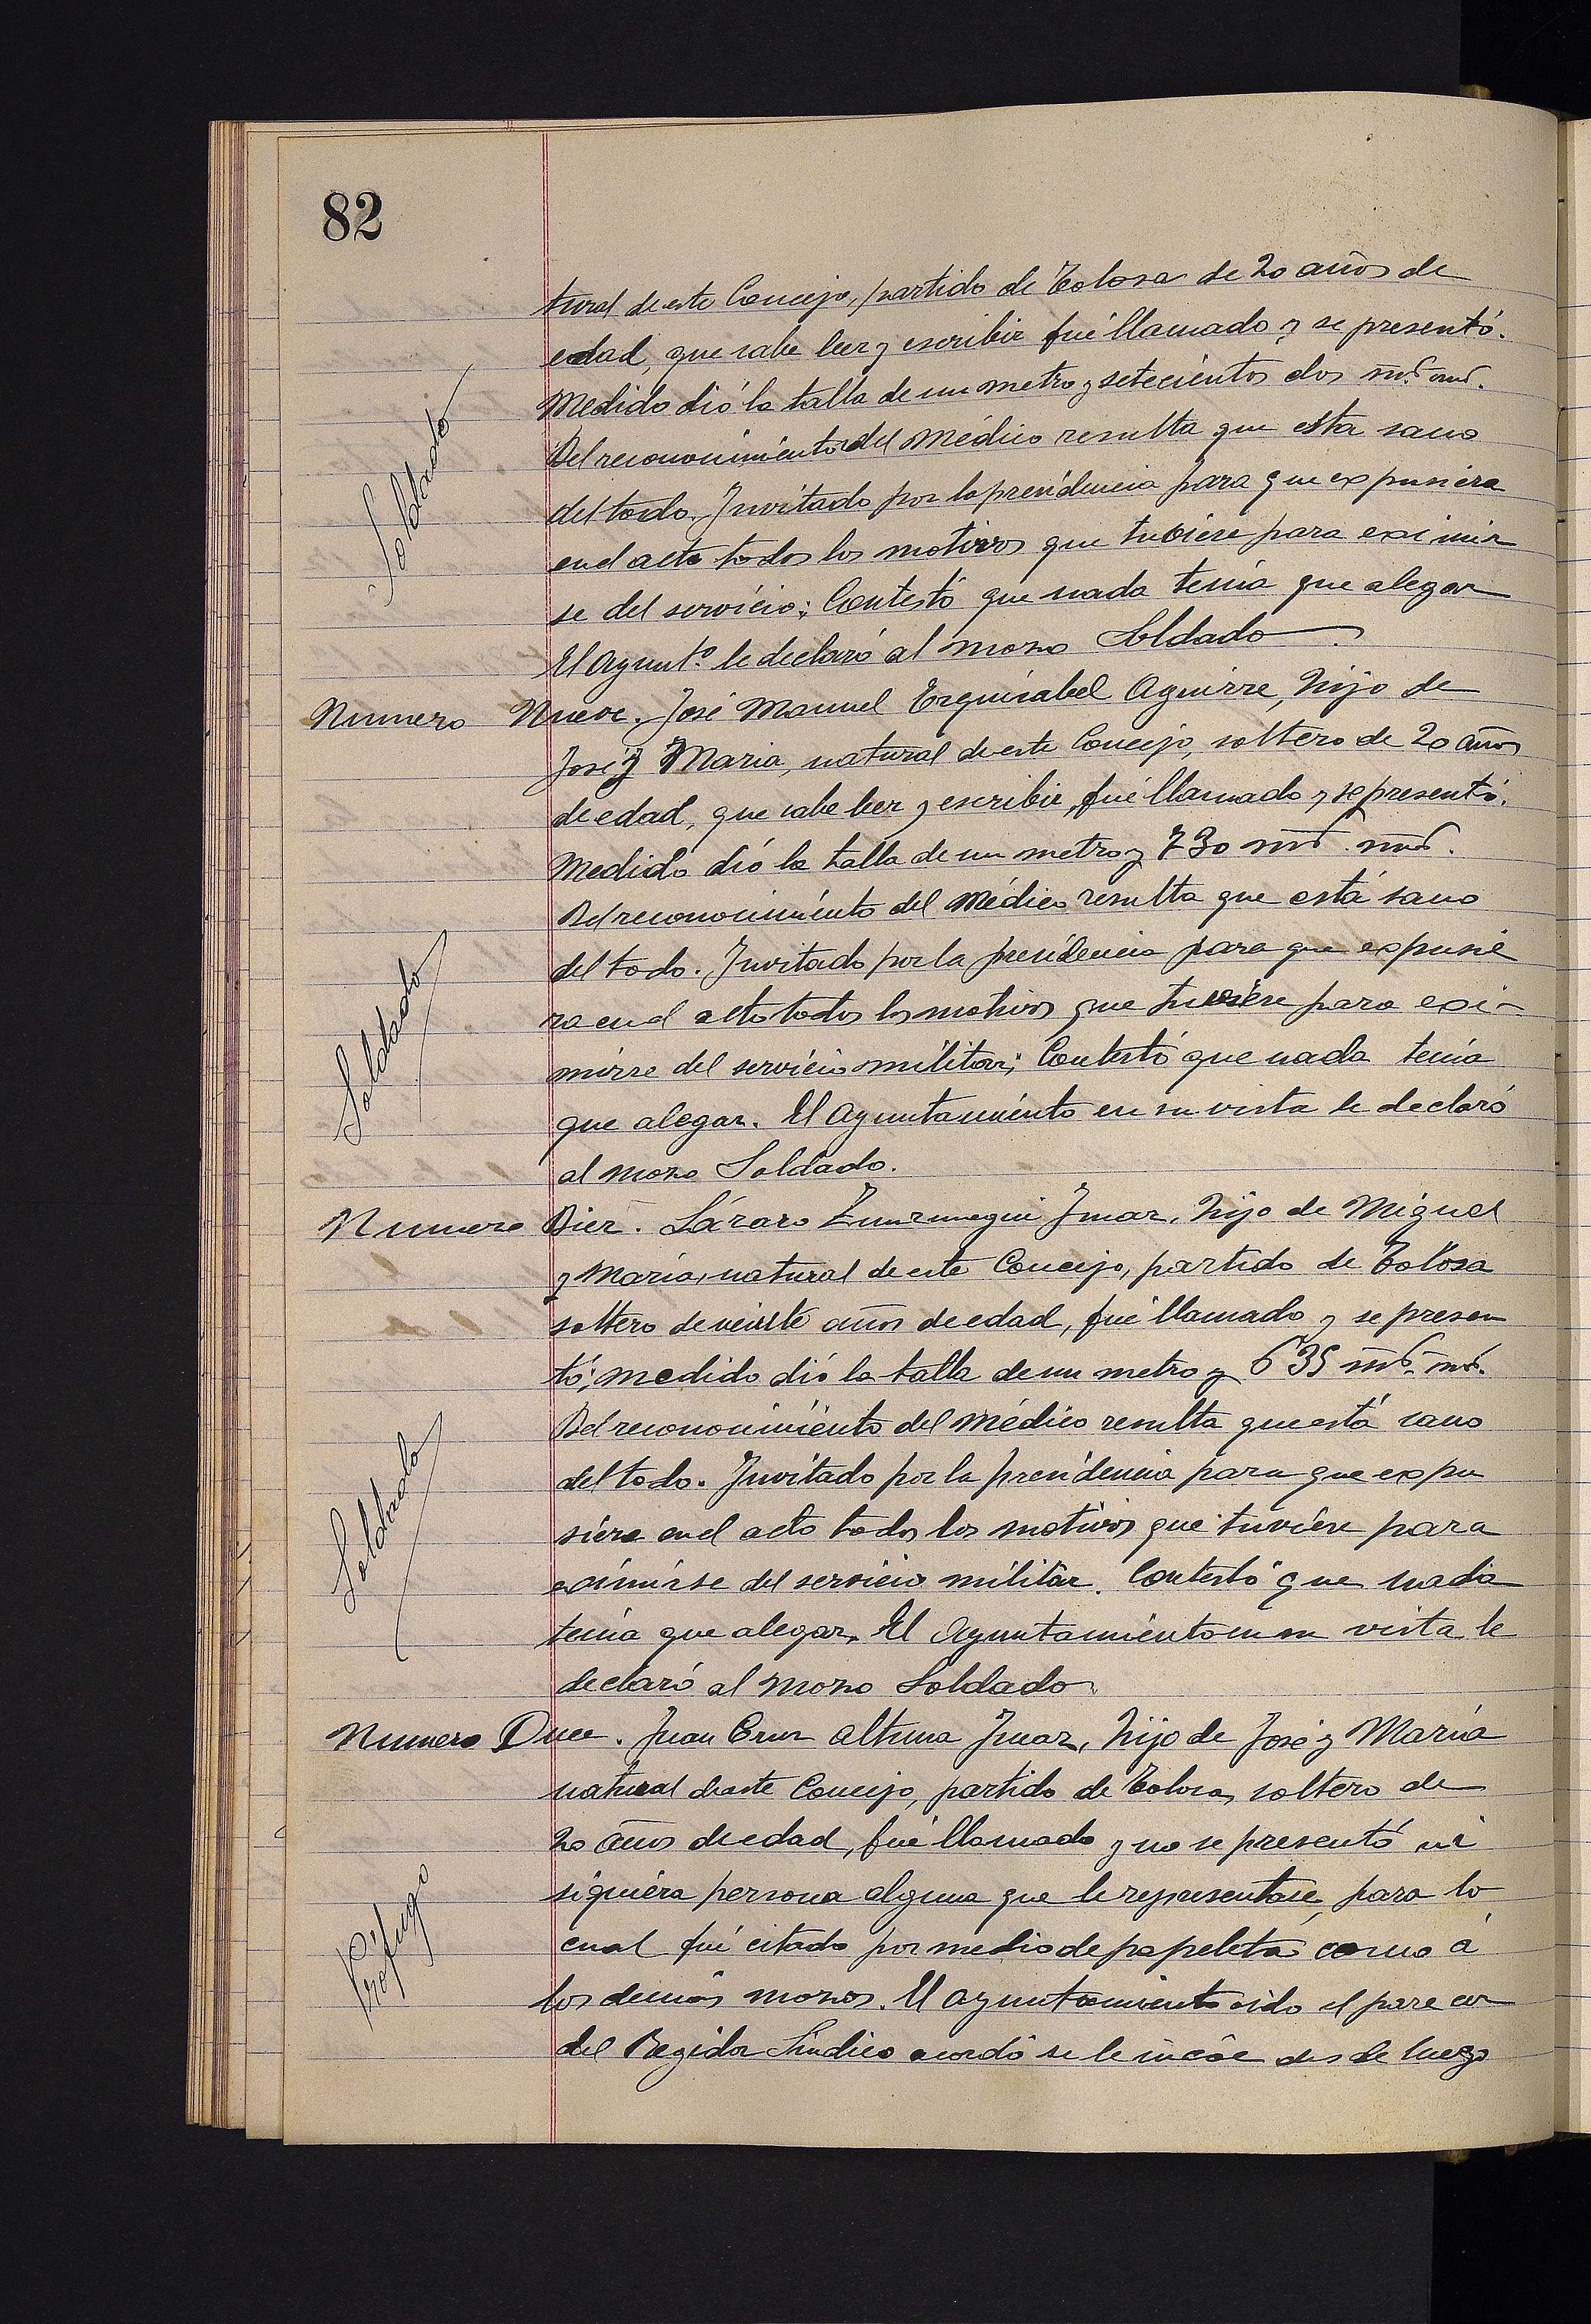 82
tural de este Concejo, partido de Tolosa de 20 años de
edad, que sabe leer y escribir fué llamado y se presentó.
Medido dió la talla de un metro y setecientos dos
Soldado
Del reconocimiento del Médico resulta que esta sano
del todo. Invitado por la presidencia para que expusiera
en el acto todos los motivos que tubiere para eximir
se del servicio; Contestó que nada tenía que alegar
El Ayuntº. le declaró al mozo Soldado.
Numero Nueve. José Manuel Ezquisabel Aguirre, hijo de
José y Maria, natural de este Concejo, soltero de 20 años
de edad, que sabe leer y escribir, fué llamado y se presentó.
Medido dió la talla de un metro y 730
Del reconocimiento del Médico resulta que está sano
del todo. Invitado por la presidencia para que expusie
Soldado
ra en el acto todos los motivos que tuviere para exi-
mirse del servicio militar; Contestó que nada tenía
que alegar. El Ayuntamiento en su vista le declaró
al mozo Soldado.
Numero Diez. Lázaro Imaz, hijo de Miguel
y María, natural de este Concejo, partido de Tolosa
soltero de veinte años de edad, fué llamado y se presen
tó; medido dió la talla de un metro y 635
Del reconocimiento del Médico resulta que está sano
del todo. Invitado por la presidencia para que expu
Soldado
siera en el acto todos los motivos que tuviere para
eximirse del servicio militar. Contestó que nada
tenía que alegar. El Ayuntamiento en su vista le
declaró al mozo Soldado.
Numero Once. Juan Cruz Altuna Imaz, hijo de José y María
natural de este Concejo, partido de Tolosa, soltero de
20 años de edad, fué llamado y no se presentó ni
siquiera persona alguna que le representase, para lo
Prófugo
cual fué citado por medio de papeleta como á
los demás mozos. El Ayuntamiento oido el parecer
del Regidor Síndico acordó se le incóe desde luego